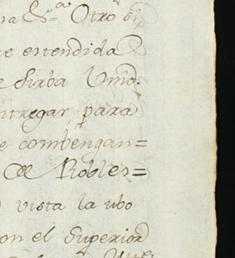 na Ess.ª Otro si
e entendida
e sirba Umd.
ntregar para
e combengan=
de Robles=
vista la ubo
on el Superior